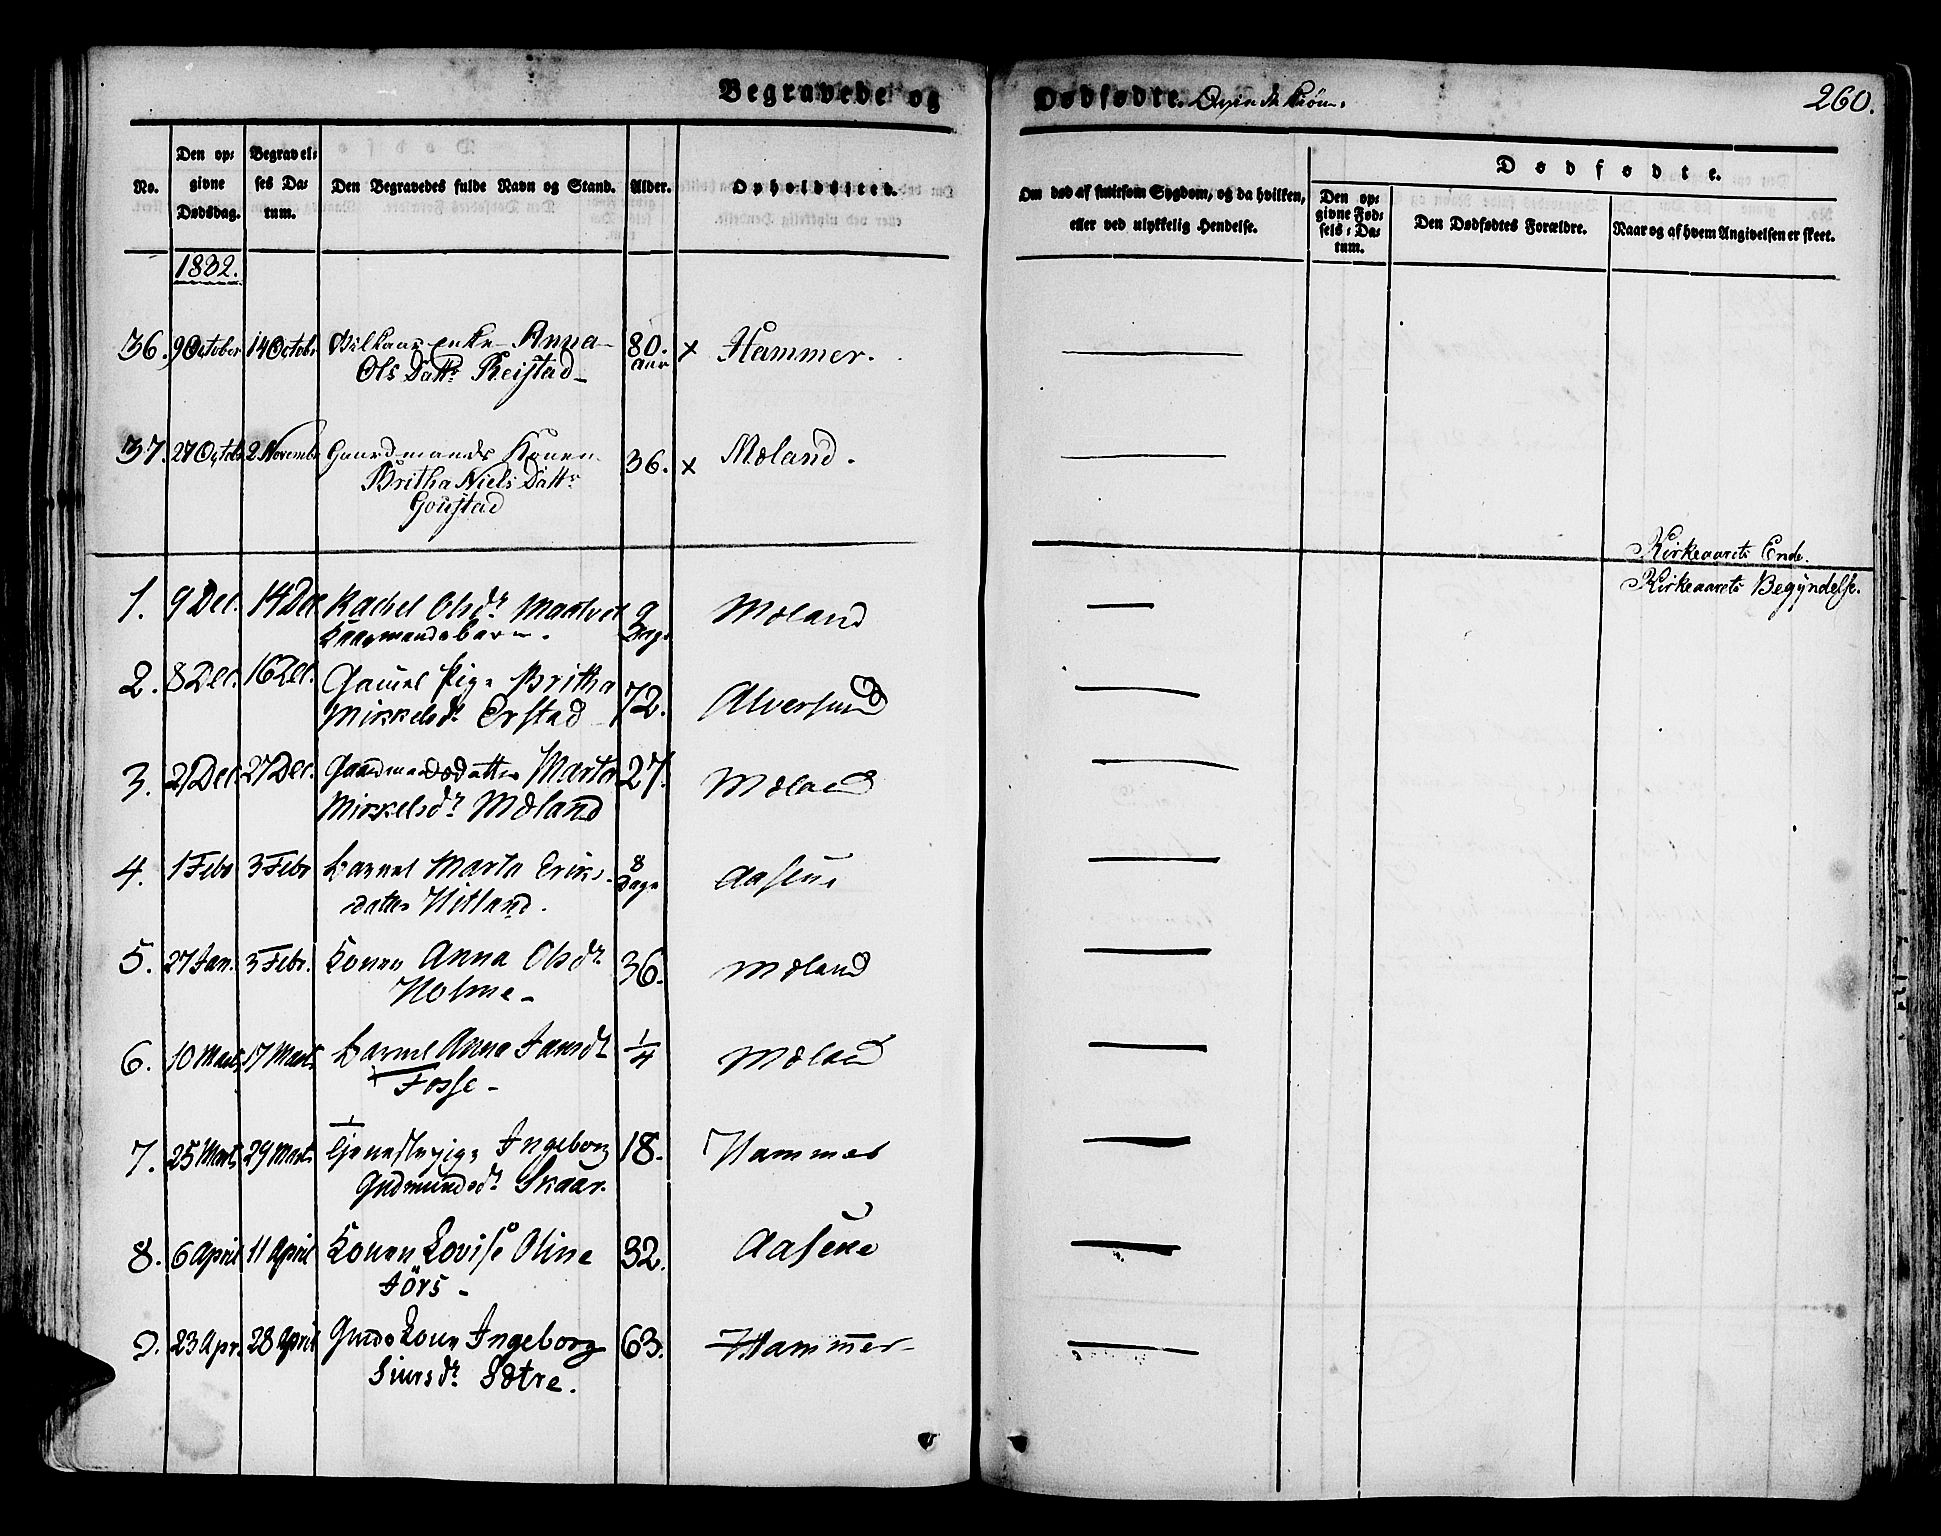 Begravede og Dødfødte. Qvindekiøn. 260.
No. Den opgivne Dødsdag. Begravelses Datum. Den Begravedes fulde Navn og Stand. Alder. Opholdssted. Om død af smitsom Sygdom, og da hvilken, eller ved ulykkelig Hendelse. Dødfødte. Den opgivne Fødsels-Datum. Den Dødfødtes Forældre. Naar og af hvem Angivelsen er skeet.
1832.
36. 9 October 14 Octobr enke Anna 80. x Hammer.
Ols Dattr Reistad Aar
37. 27 Octobr 2 Novembr Gaardmands Konen 36. x Mæland.
Britha Niels Dattr
Goustad
Kirkeaarets Ende.
Kirkeaarets Begyndelse.
1. 9 Dec. 14 Dec Rachel Olsdr 9 Mæland
Huusmandsbarn. Dage
2. 8 Dec. 16 Dec. Gamel Pige Britha 72. Alversund
Mikkelsdr Erstad
3. 21 Dec. 27 Dec. Gaardmandsdatter Marta 27. Mæland
Mikkelsdr Mæland
4. 1 Febr 3 Febr Barnet Marta Eriks 8 Aasene
datter Hilland. Dage
5. 27 Jan. 3 Febr. Konen Anna Olsdr 36. Mæland
Holme
6. 10 Marts 17 Marts Barnet Anna Jansdr 1/4 Mæland
Fosse
7. 25 Marts 29 Marts Tjenestepige Ingeborg 18. Hammer
Gudmundsdr Skaar.
8. 6 April 11 April Konen Lovise Oline 32. Aasene
Jörs
9. 23 Apr. 28 April Gmds Kone Ingeborg 63. Hammer
Siursdr Sætre.